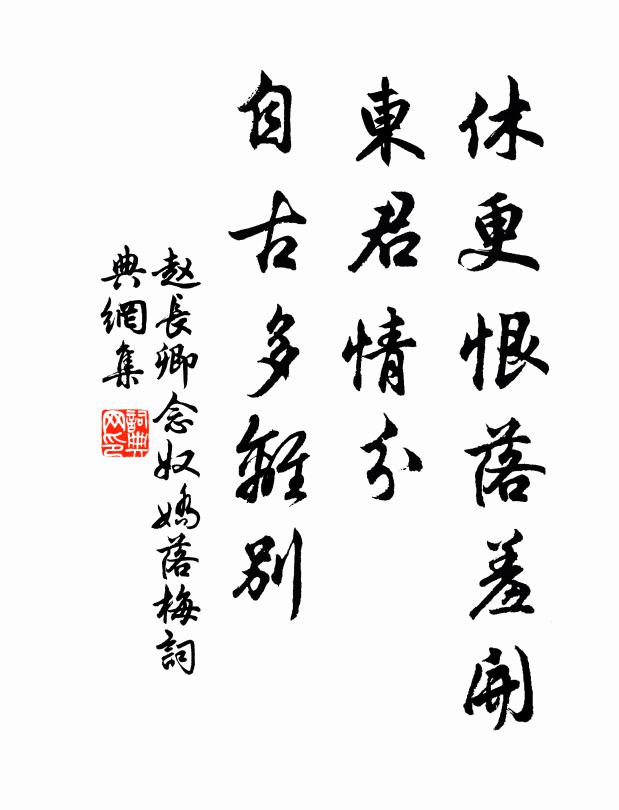 休更恨落羞開
東君情分
自古多離別
赵長卿念奴嬌落梅詞
典網集
詞典
网印